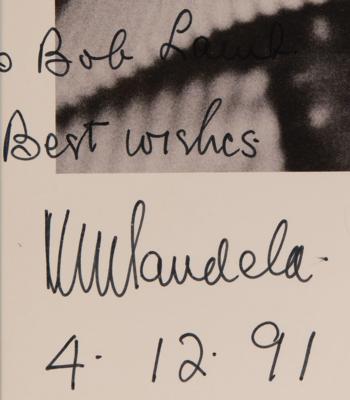 o Bob Lamb
Best wishes
NMandela.
4. 12. 91